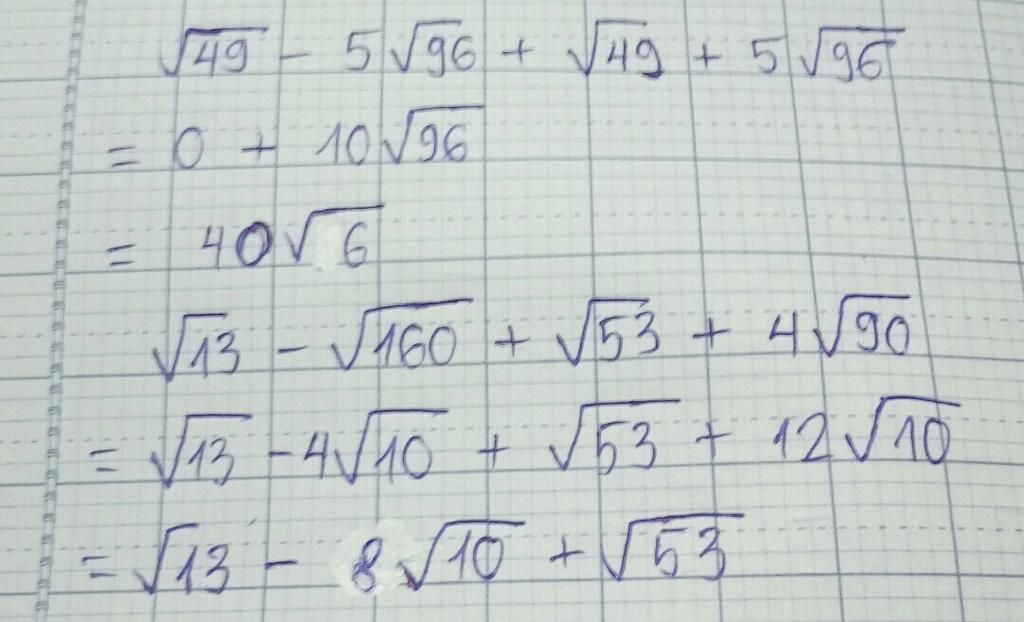 √49 - 5√96 + √49 + 5√96
= 0 + 10√96
= 40√6
√13 - √160 + √53 + 4√90
= √13 - 4√10 + √53 + 12√10
= √13 - 8√10 + √53